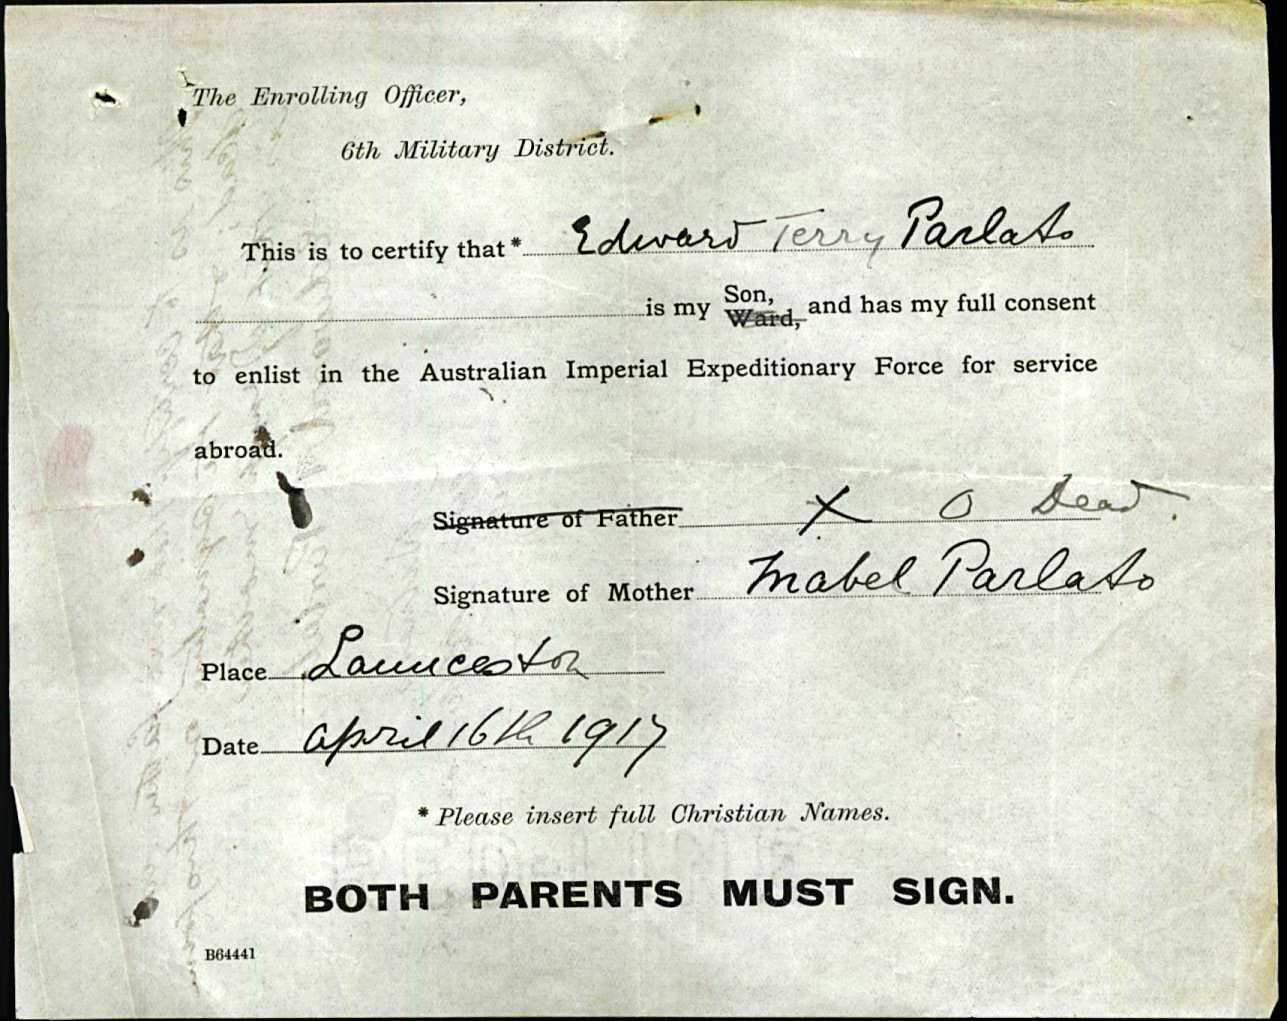 The Enrolling Officer,
6th Military District.
This is to certify that* Edward Terry Parlato
is my Son, Ward, and has my full consent
to enlist in the Australian Imperial Expeditionary Force for service
abroad.
Signature of Father X O Dead.
Signature of Mother Mabel Parlato
Place Launceston
Date April 16th 1917
* Please insert full Christian Names.
BOTH PARENTS MUST SIGN.
B64441